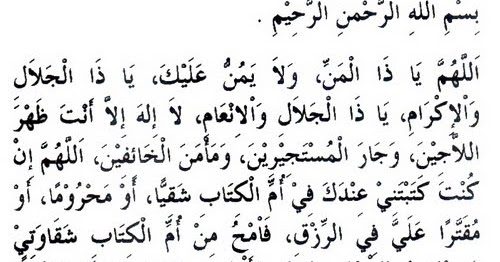 بِسْمِ اللهِ الرَّحْمنِ الرَّحِيْمِ .
اَللَّهُمَّ يَا ذَا الْمَنِّ، وَلاَ يَمُنُّ عَلَيْكَ، يَا ذَا الْجَلَالِ
وَاْلإِكْرَامِ، يَا ذَا الْجَلَالِ وَاْلاِنْعَامِ، لاَ إِلهَ إِلاَّ أَنْتَ ظَهْرَ
اللاَّجِيْنَ، وَجَارَ الْمُسْتَجِيْرِيْنَ، وَمَأْمَنَ الْخَائِفِيْنَ، اَللَّهُمَّ إِنْ
كُنْتَ كَتَبْتَنِيْ عِنْدَكَ فِيْ أُمِّ الْكِتَابِ شَقِيًّا، أَوْ مَحْرُوْمًا، أَوْ
مُقَتَّرًا عَلَيَّ فِي الرِّزْقِ، فَاْمْحُ مِنْ أُمِّ الْكِتَابِ شَقَاوَتِيْ